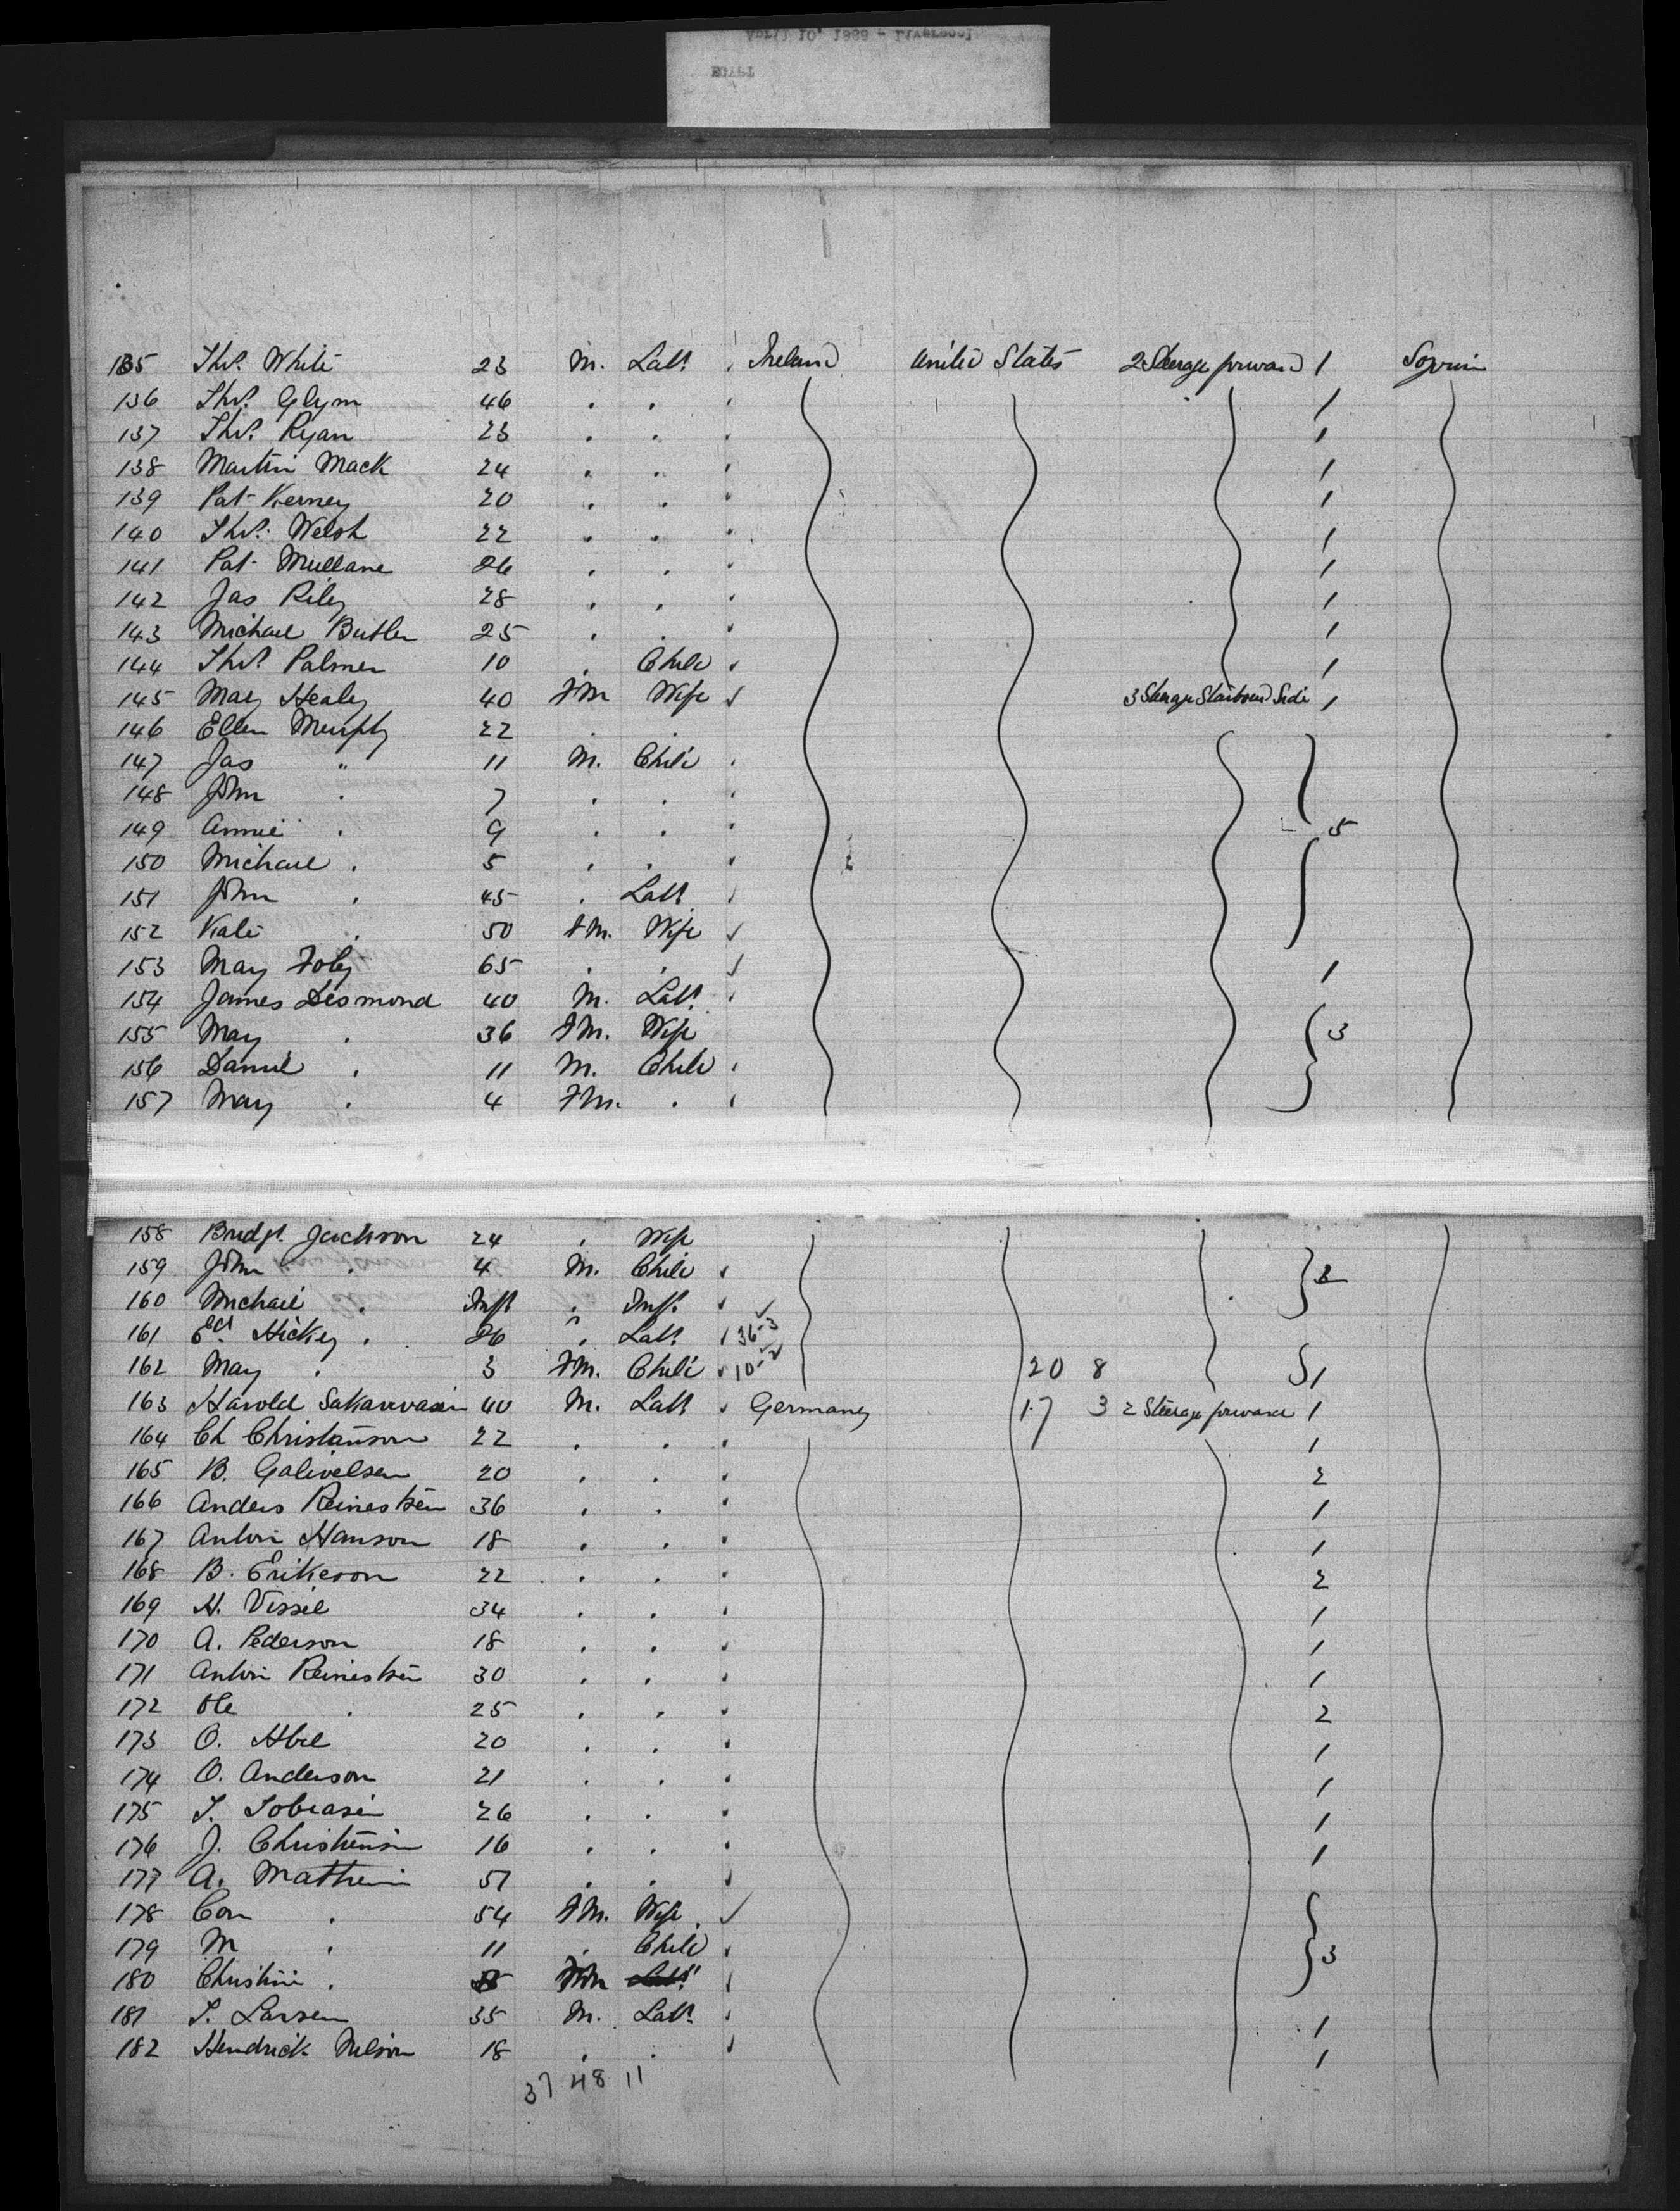 April 10, 1889 - Liverpool
EGYPT
135 Thos. White 23 M. Labr. Ireland United States 2 Steerage forward 1 Sojourn
136 Thos. Glynn 46 . . 1
137 Thos. Ryan 23 . . 1
138 Martin Mack 24 . . 1
139 Pat Kerney 20 . . 1
140 Thos. Welsh 22 . . 1
141 Pat Mullane 26 . . 1
142 Jas Riley 28 . . 1
143 Michael Butler 25 . . 1
144 Thos. Palmer 10 . Child 1
145 Mary Healey 40 FM Wife 3 Steerage Starboard Side 1
146 Ellen Murphy 22 . .
147 Jas " 11 M. Child
148 John . 7 . .
149 Annie . 9 . . 5
150 Michael . 5 . .
151 John . 45 . Labr
152 Kate . 50 FM. Wife
153 Mary Foley 65 . . 1
154 James Desmond 40 M. Labr.
155 Mary . 36 FM. Wife 3
156 Daniel . 11 M. Child
157 Mary . 4 FM. .
158 Bridgt. Jackson 24 . Wife
159 John . 4 M. Child 2
160 Michael . Inft . Inft.
161 Edd. Hickey . 26 . Labr. 36-3
162 Mary . 3 FM. Child 10-2 20 8 1
163 Harold 40 M. Labr Germany 17 3 2 Steerage forward 1
164 Ch Christanson 22 . . 1
165 B. 20 . . 2
166 Anders Reinestsen 36 . . 1
167 Anton Hanson 18 . . 1
168 B. Erikeson 22 . . 2
169 H. Vissel 34 . . 1
170 A. Pederson 18 . . 1
171 Anton Reinestsen 30 . . 1
172 Ole . 25 . . 2
173 O. 20 . . 1
174 O. Anderson 21 . . 1
175 T. Tobiasen 26 . . 1
176 J. Christensen 16 . . 1
177 A. 51 . .
178 . 54 FM. Wife
179 M . 11 . Child 3
180 Christine . FM
181 T. Larsen 35 M. Labr. 1
182 Hendrick Nelson 18 . . 1
37 48 11